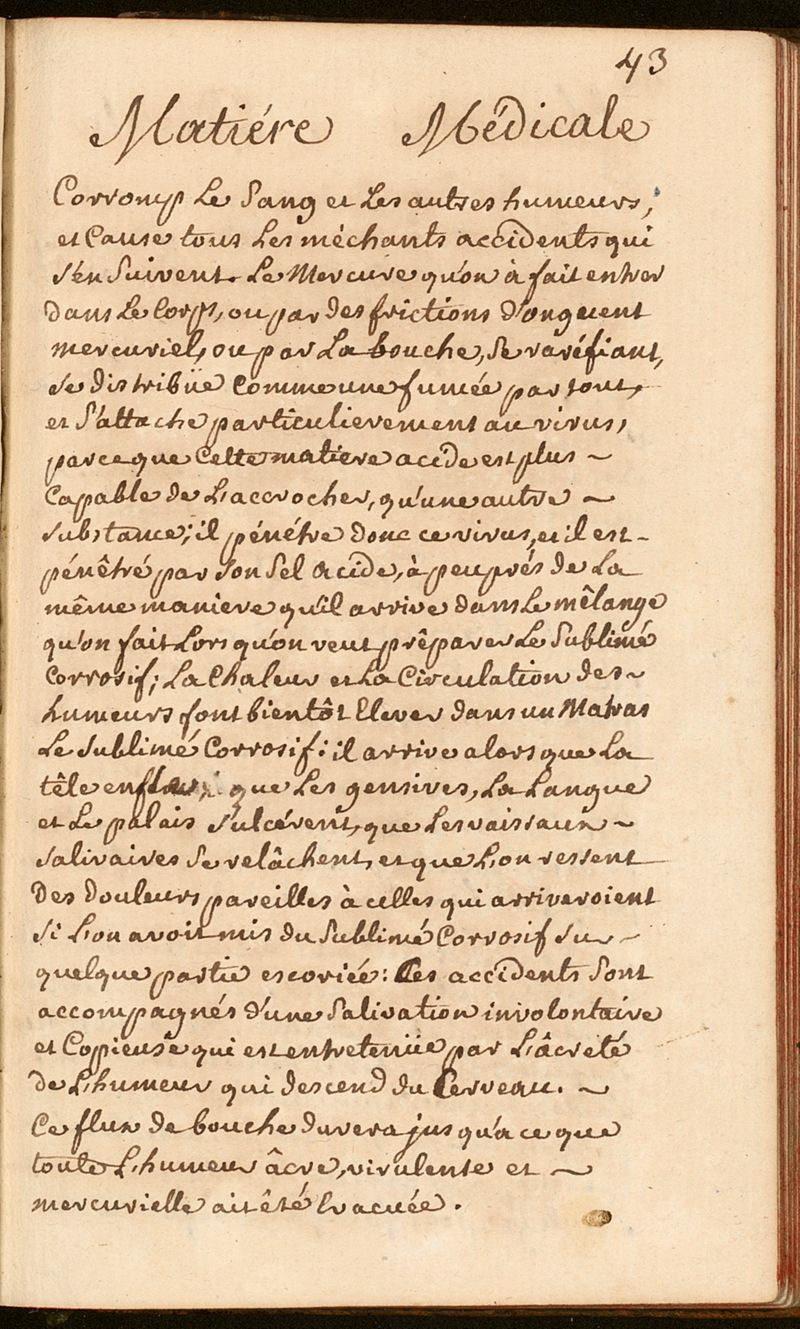 43
Matiére Médicale
Corromp Le Sang et Les autres humeurs,
et Cause tous Les méchants accidents qui
s'en Suivent. Le Mercure qu'on à fait entrer
dans Le Corps, ou par des frictions d'onguent
mercuriel, ou par La bouche, Se raréfiant,
se distribüe comme une fumée par tout,
et S'attache particulierement au virus,
parce que Cette matiere acide est plus ~
Capable de L'accrocher, qu'une autre ~
substance; il pénétre donc ce virus, et il est -
pénêtré par Son Sel acide, à peu prés de La
même maniere qu'il arrive dans Le mêlange
qu'on fait Lors qu'on veut prêparer Le Sublimé
Corrosif; La Chaleur et La Circulation des ~
humeurs font bientôt Elever dans un Matras
Le Sublimé Corrosif: il arrive alors que La
têle enfle, que Les gensives, La Langue
et Le palais S'ulcérent, que Les vaisseaux ~
Salivaires Se relâchent, et que L'on ressent
Des douleurs pareilles à celles qui arriveroient
Si L'on avoit mis du Sublimé Corrosif Su -
quelque partie escoriée: Ces accidents Sont
accompagnés d'une Salivation involontaire
et Copieuse qui est entretenüe par L'âcreté
de L'humeur qui descend du Cerveau. ~
Ce flux de bouche durera jusqu'a ce que
toute L'humeur âcre, virulente et ~
mercurielle ait êté Evacuée.